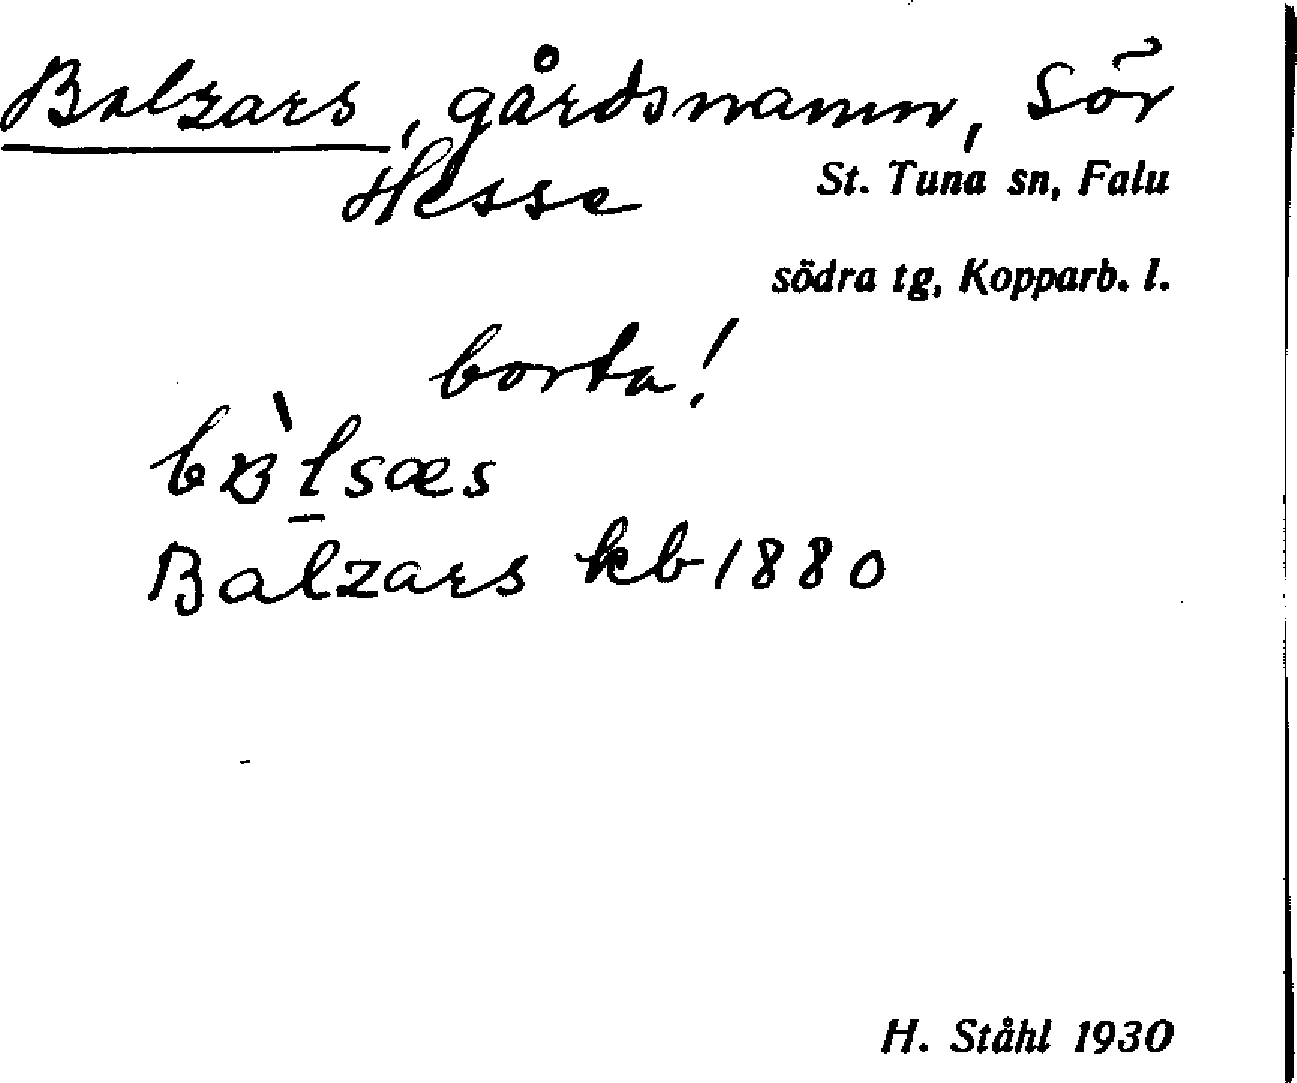 Balzars, gårdsnamn, Sör
Hesse
St. Tuna sn, Falu
södra tg, Kopparb. l.
borta!
Balzars kb 1880
H. Ståhl 1930